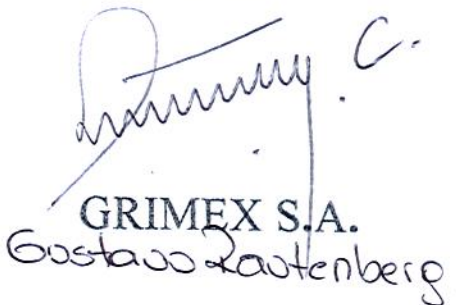 C.
GRIMEX S.A.
Gustavo Rautenberg